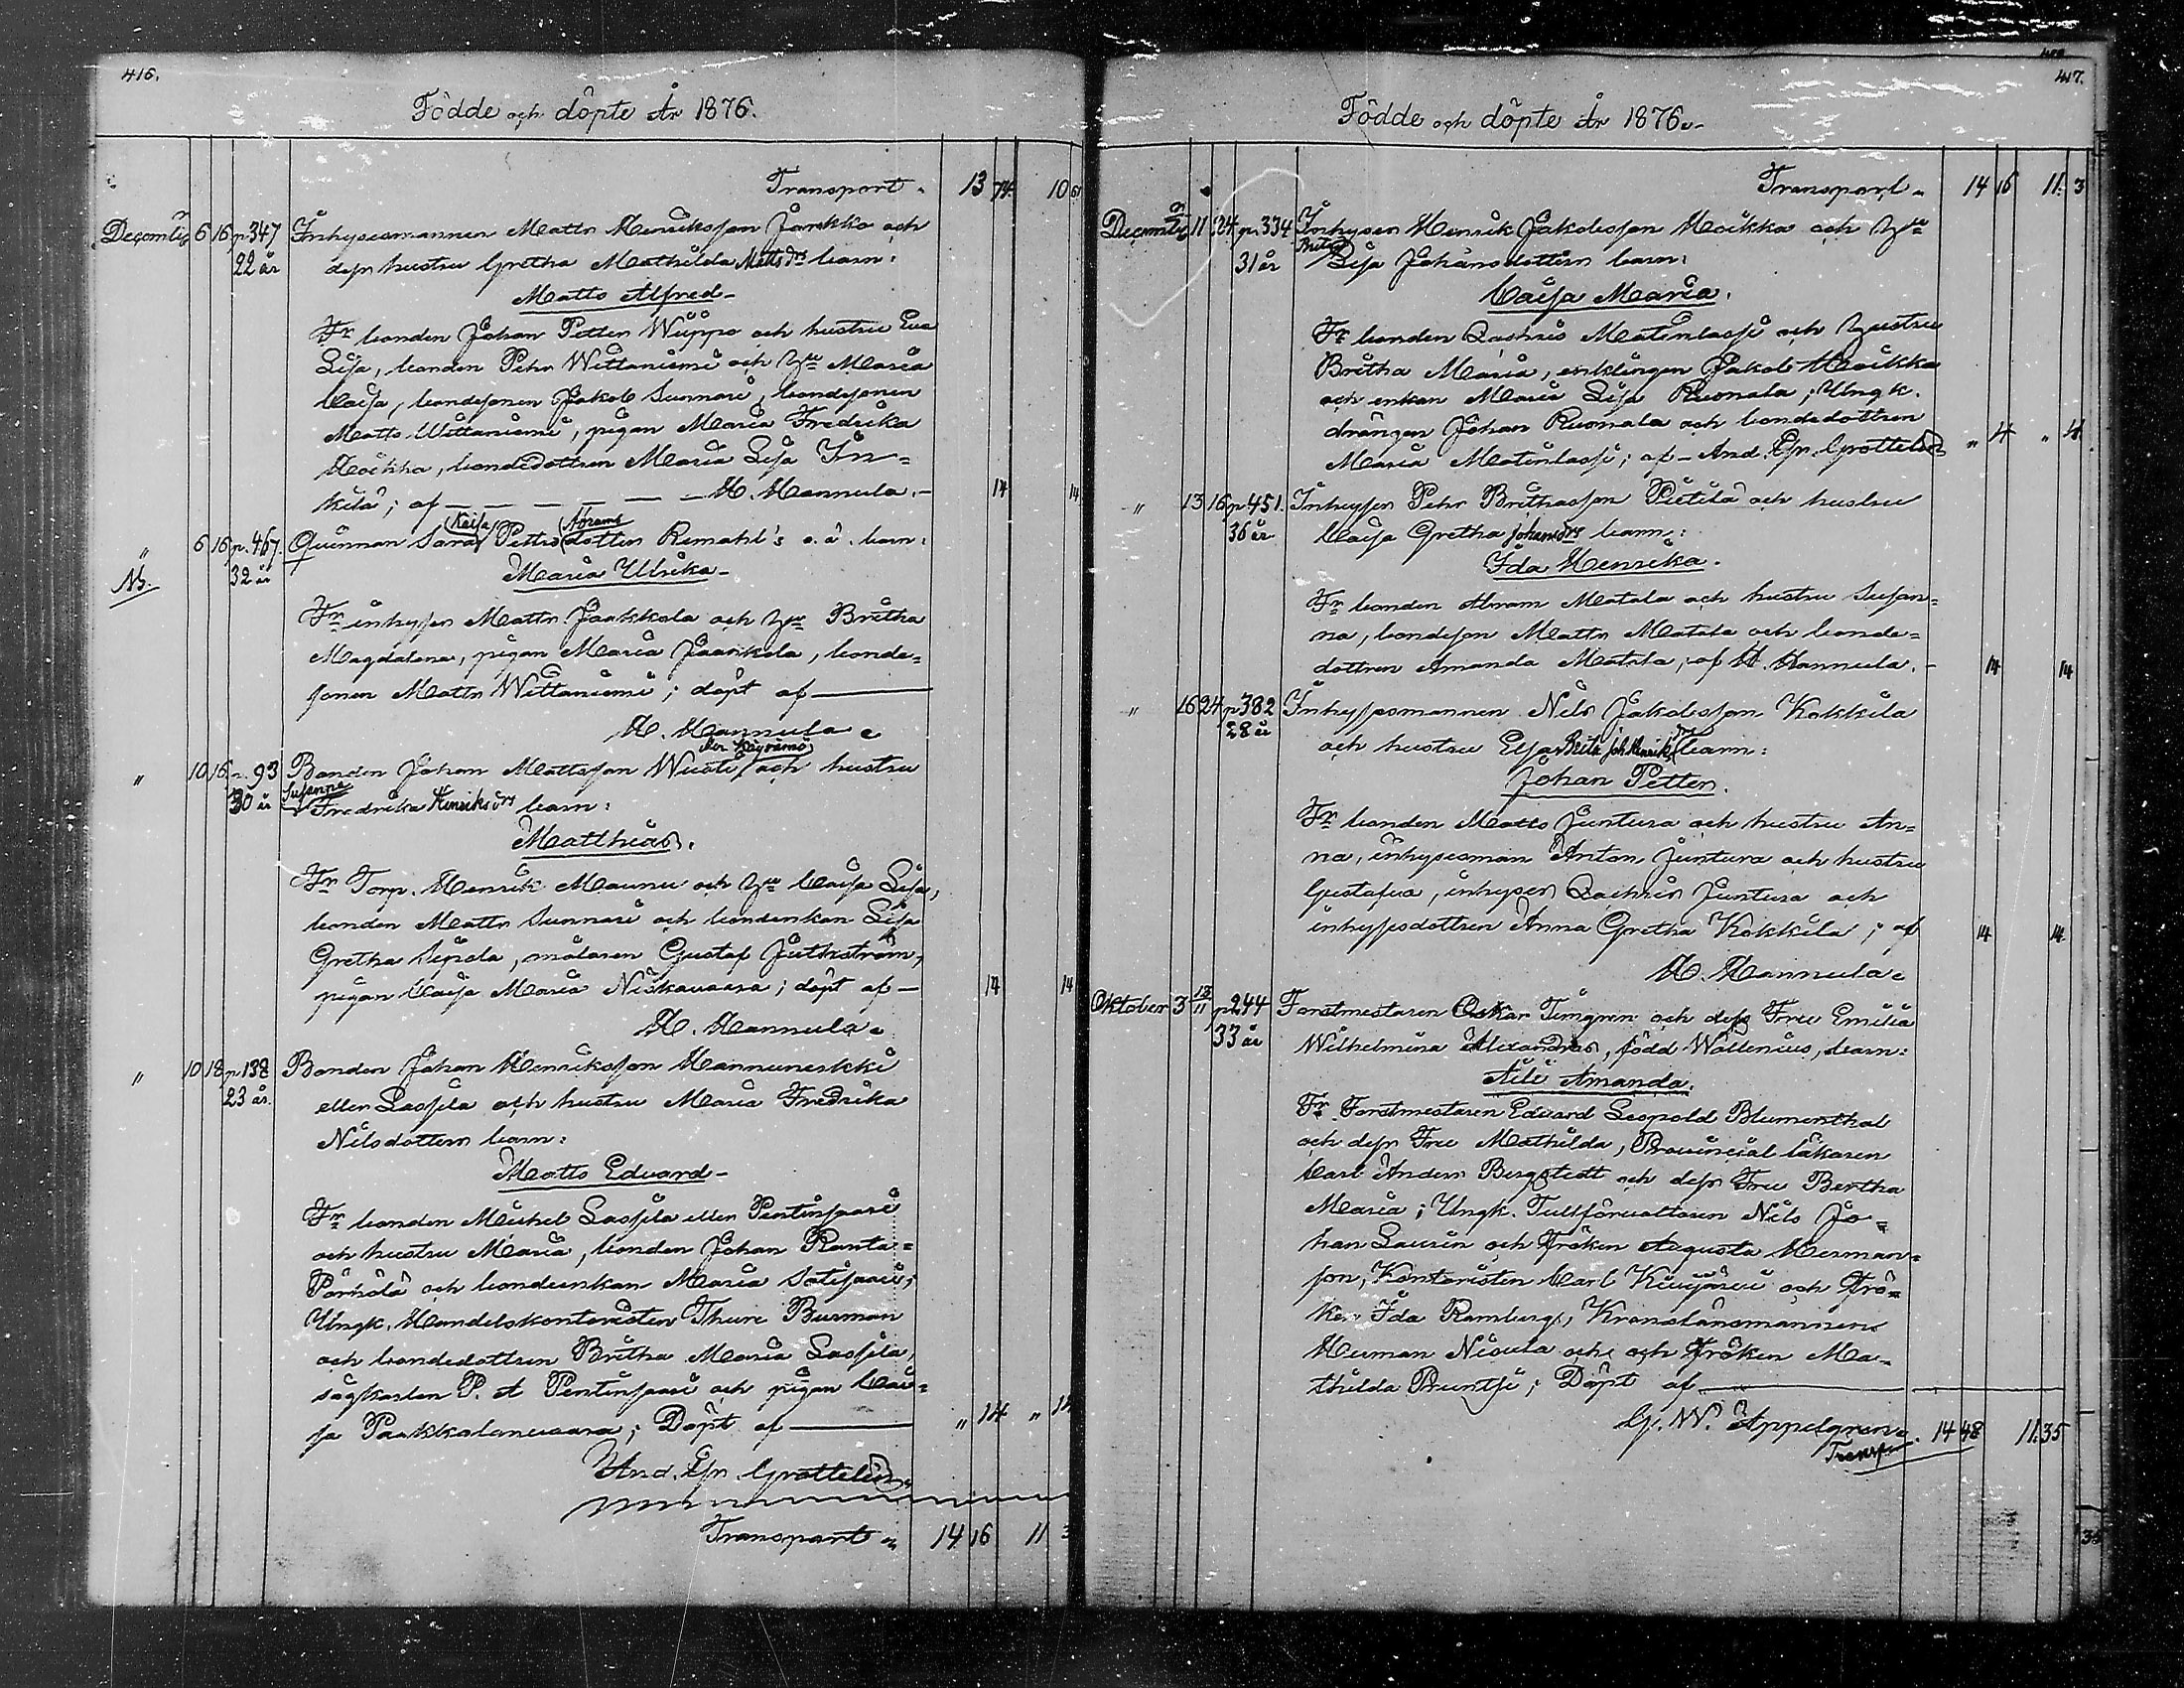 416.
Födde och döpte År 1876.
Transport. 13 74. 10 61
Decemb 6 16 p. 347 Inhysesmannen Matts Henriksson Jarkko och
22 år dess hustru Gretha Mathilda Matts drs barn:
Matts Alfred
Fr bonden Johan Petter Wiippo och hustru Eva
Lisa, bonden Pehr Wittaniemi och Hu Maria
Caisa, bondsonen Jakob Sunnari, bondsonen
Matts Wittaniemi, pigan Maria Fredrika
Koikka, bondedottren Maria Lisa In-
kilä; af — H. Hannula. 14 14
" 6 16 p. 467. Qvinnan Sara Kaisa Petters Abrams dotter Remahl's o. ä. barn:
Nb. 32 år Maria Ulrika
Fr inhyses Matts Jaakkola och Hu Britha
Magdalena, pigan Maria Jaarikola, bonde-
sonen Matts Wittaniemi; döpt af —
H. Hannula
" 10 16 p. 93 Bonden Johan Mattsson Wuoti eller Köyrämö och hustru
30 år Susanna Fredrika Henriks drs barn:
Matthias.
Fr Torp. Henrik Maunu och Hu Caisa Lisa,
bonden Matts Sunnari och bondenkan Lisa
Gretha Sipola, målaren Gustaf Juthström,
pigan Caisa Maria Niskavaara; döpt af — 14 14
H. Hannula
" 10 18 p. 138 Bonden Johan Henriksson Hannuneskki
23 år. eller Lassila och hustru Maria Fredrika
Nilsdotters barn:
Matts Edvard
Fr bonden Michel Lassila eller Pentinsaari
och hustru Maria, bonden Johan Ranta-
Pörhölä och bondeenkan Maria Sotisaari,
Ungk. Handelskontoristen Thure Burman
och bondedottren Britha Maria Lassila,
sågkarlen P. A Pentinsaari och pigan Cai-
sa Paakkolanvaara; Döpt af — " 14 " 14
And. Efr. Grottelin
Transport 14 16 11 3
417.
Födde och döpte År 1876.
Transport 14 16 11. 3
Decemb 11 24 p. 334 Inhyses Henrik Jakobsson Koikka och Hu
31 år Brita Lisa Johansdotters barn:
Caisa Maria.
Fr bonden Zachris Matinlassi och hustru
Britha Maria, enklingen Jakob Koikka
och enkan Maria Lisa Ruonala; Ungk.
drängen Johan Ruonala och bondedottren
Maria Matinlassi; af – And. Efr. Grottelin " 4 " 4
" 13 16 p 451. Inhyses Pehr Brithasson Pietilä och hustru
36 år Caisa Gretha Johans drs barn:
Ida Henrika.
Fr bonden Abram Matala och hustru Susan-
na, bondeson Matts Matala och bonde-
dottren Amanda Matala; af H. Hannula. 14 14
" 16 24 p 382 Inhysesmannen Nils Jakobsson Kokkila
28 år och hustru Elsa Brita Joh. Henriks dr barn:
Johan Petter.
Fr bonden Matts Juntura och hustru An-
na, inhysesman Anton Juntura och hustru
Gustafva, inhyses Zachris Juntura och
inhysesdottren Anna Gretha Kokkila; af 14 14
H. Hannula
Oktober 3 18/11 p 244 Forstmestaren Oskar Timgren och dess Fru Emilia
33 år Wilhelmina Alexandra, född Wallenius, barn:
Aili Amanda.
Fr Forstmestaren Edvard Leopold Blumenthal
och dess Fru Mathilda, Provincial läkaren
Carl Anders Bergstedt och dess Fru Bertha
Maria; Ungk. Tullförvaltaren Nils Jo-
han Laurin och Fröken Augusta Herman-
son, Kontoristen Carl Kiigjärvi och Frö-
ken Ida Ramberg, Kronolänsmannen
Herman Nicula och och Fröken Ma-
thilda Pruntsi; Döpt af —
G. W. Appelgren. 14 48 11.35
Transp